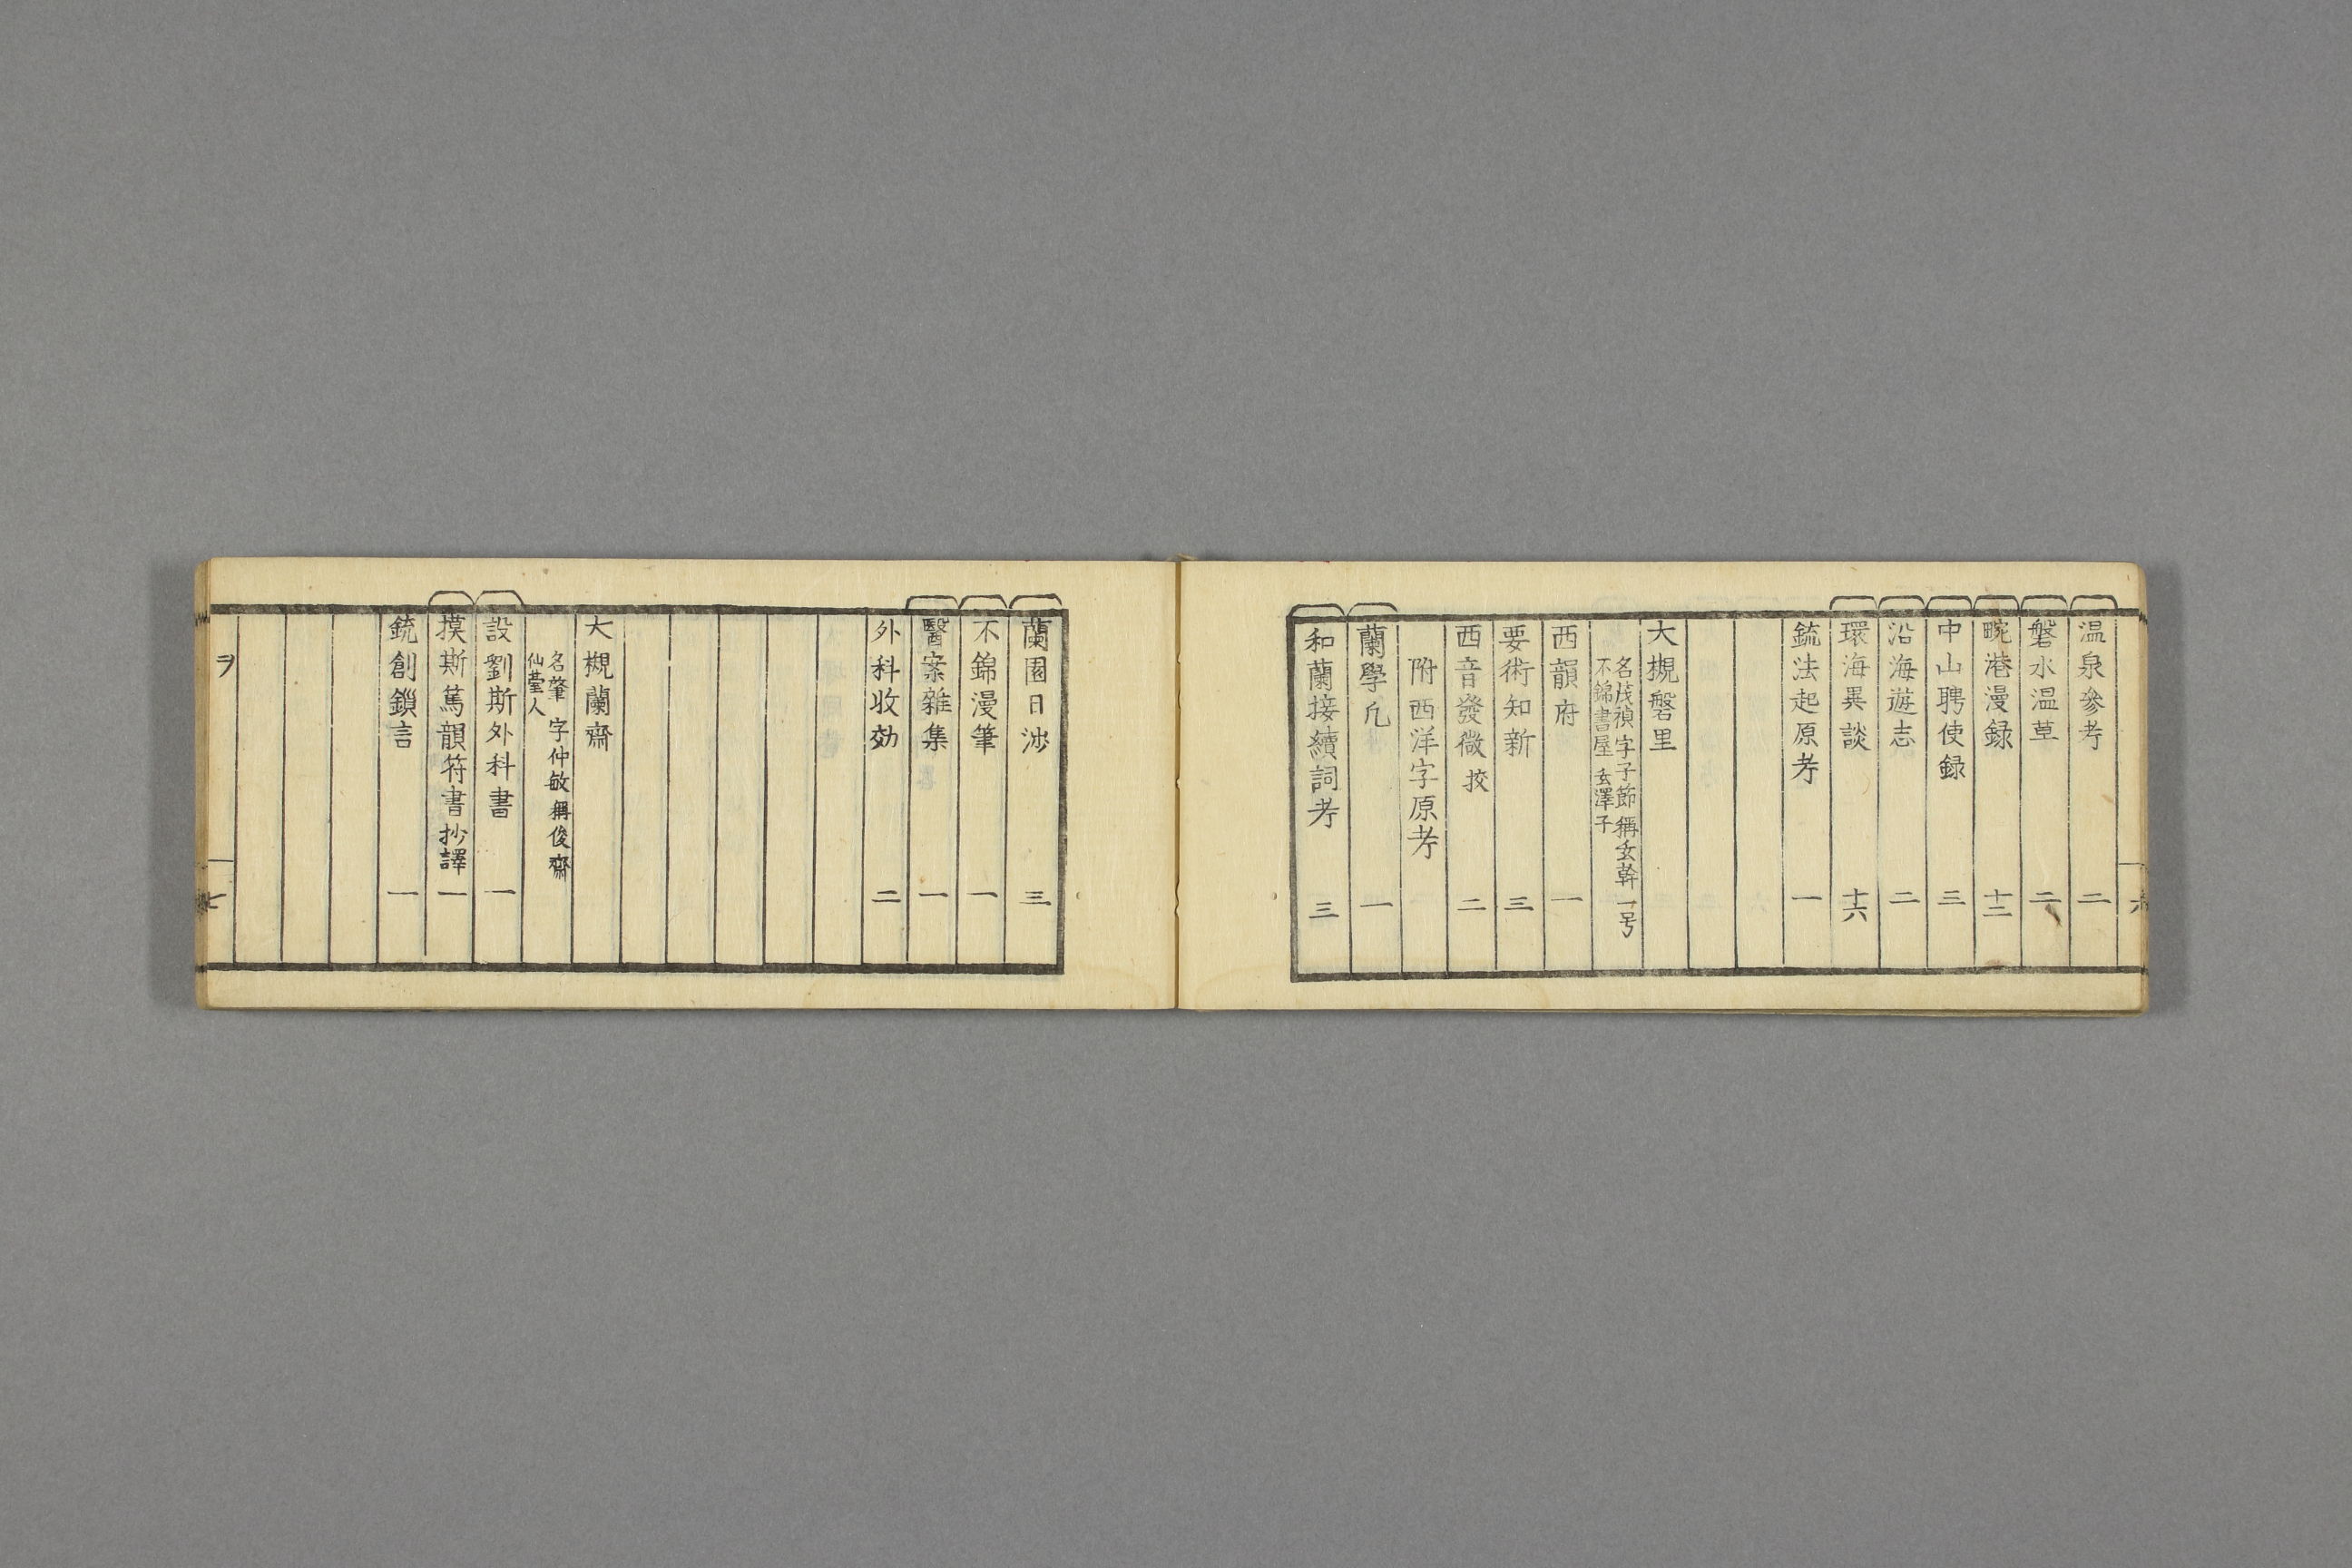 温泉參考 二
磐水温草 二
畹港漫録 十二
中山聘使録 三
沿海遊志 二
環海異談 十六
銃法起原考 一
大槻磐里
名茂禎 字子節 稱玄幹 一号
不錦書屋 玄澤子
西韻府 一
要術知新 三
西音發微 挍 二
附 西洋字原考
蘭學凡 一
和蘭接續詞考 三
蘭園日渉 三
不錦漫筆 一
醫案雜集 一
外科收効 二
大槻蘭齋
名肇 字仲敏 稱俊齋
仙䑓人
設劉斯外科書 一
摸斯篤韻符書 抄譯 一
銃創鎖言 一
ヲ
七